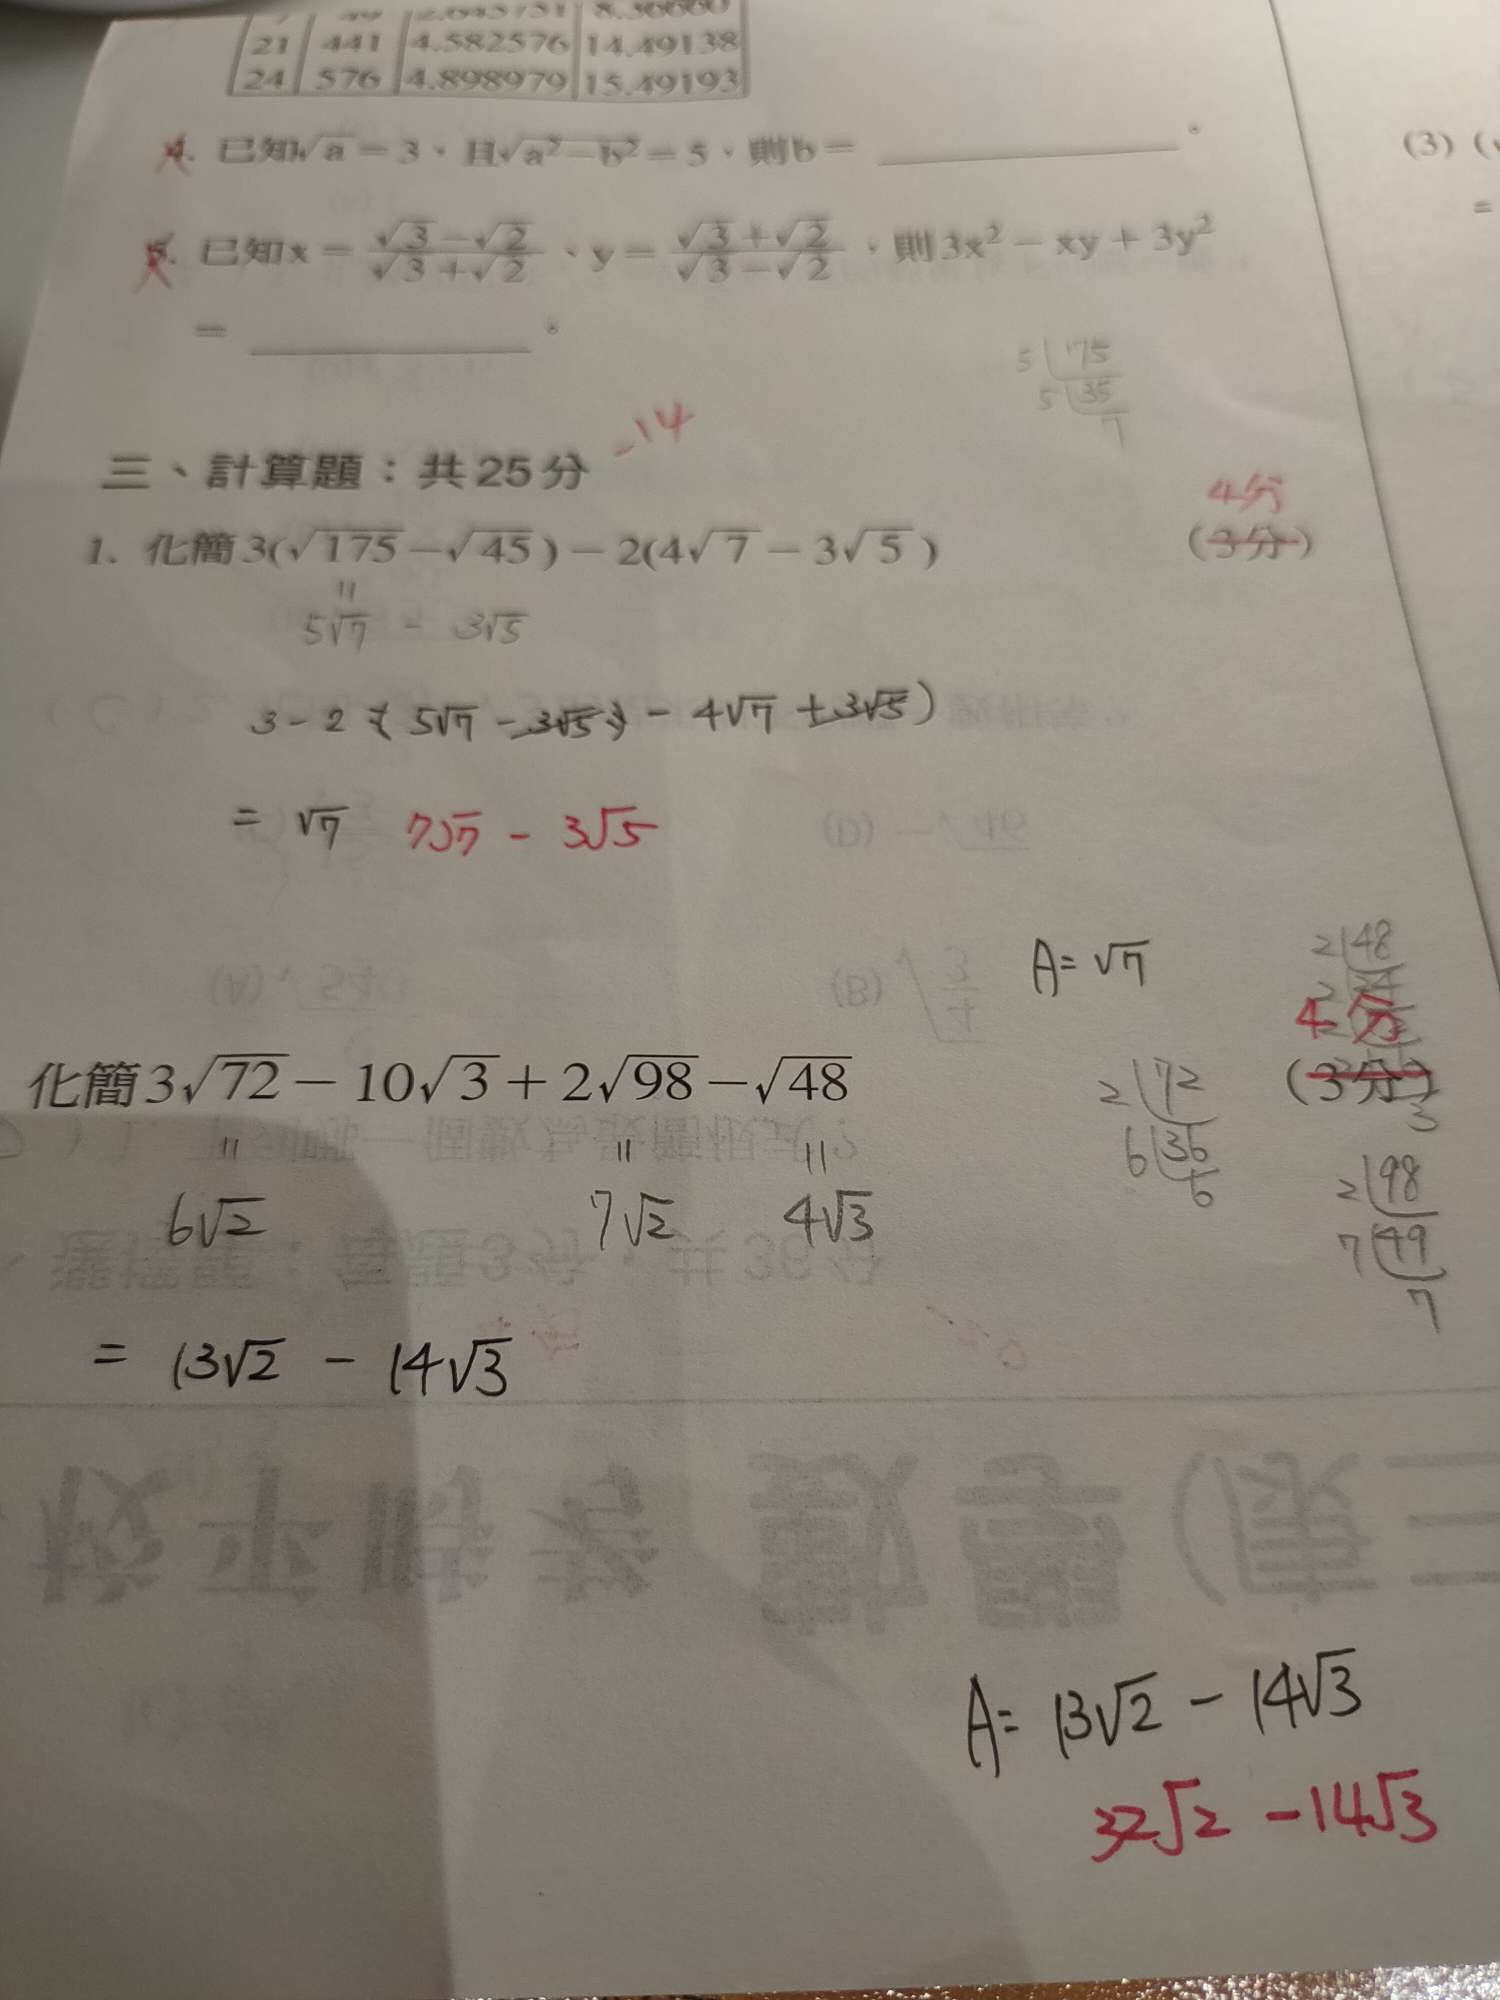 21 441 4.582576 14.49138
24 576 4.898979 15.49193
4. 已知√a＝3、且√a²－b²＝5、則b＝
(3)
5. 已知x＝(√3－√2)/(√3＋√2)、y＝(√3＋√2)/(√3－√2)，則3x²－xy＋3y²
＝
5 175
5 35
7
-14
三、計算題：共25分
4分
1. 化簡3(√175－√45)－2(4√7－3√5)
(3分)
5√7 - 3√5
3-2 ( 5√7 - 3√5 ) - 4√7 + 3√5 )
= √7 7√7 - 3√5
A= √7
2 48
4分
化簡3√72－10√3＋2√98－√48
(3分)
2 72
6 36
6
3
6√2 7√2 4√3
2 98
7 49
7
= 13√2 - 14√3
A= 13√2 - 14√3
32√2 - 14√3